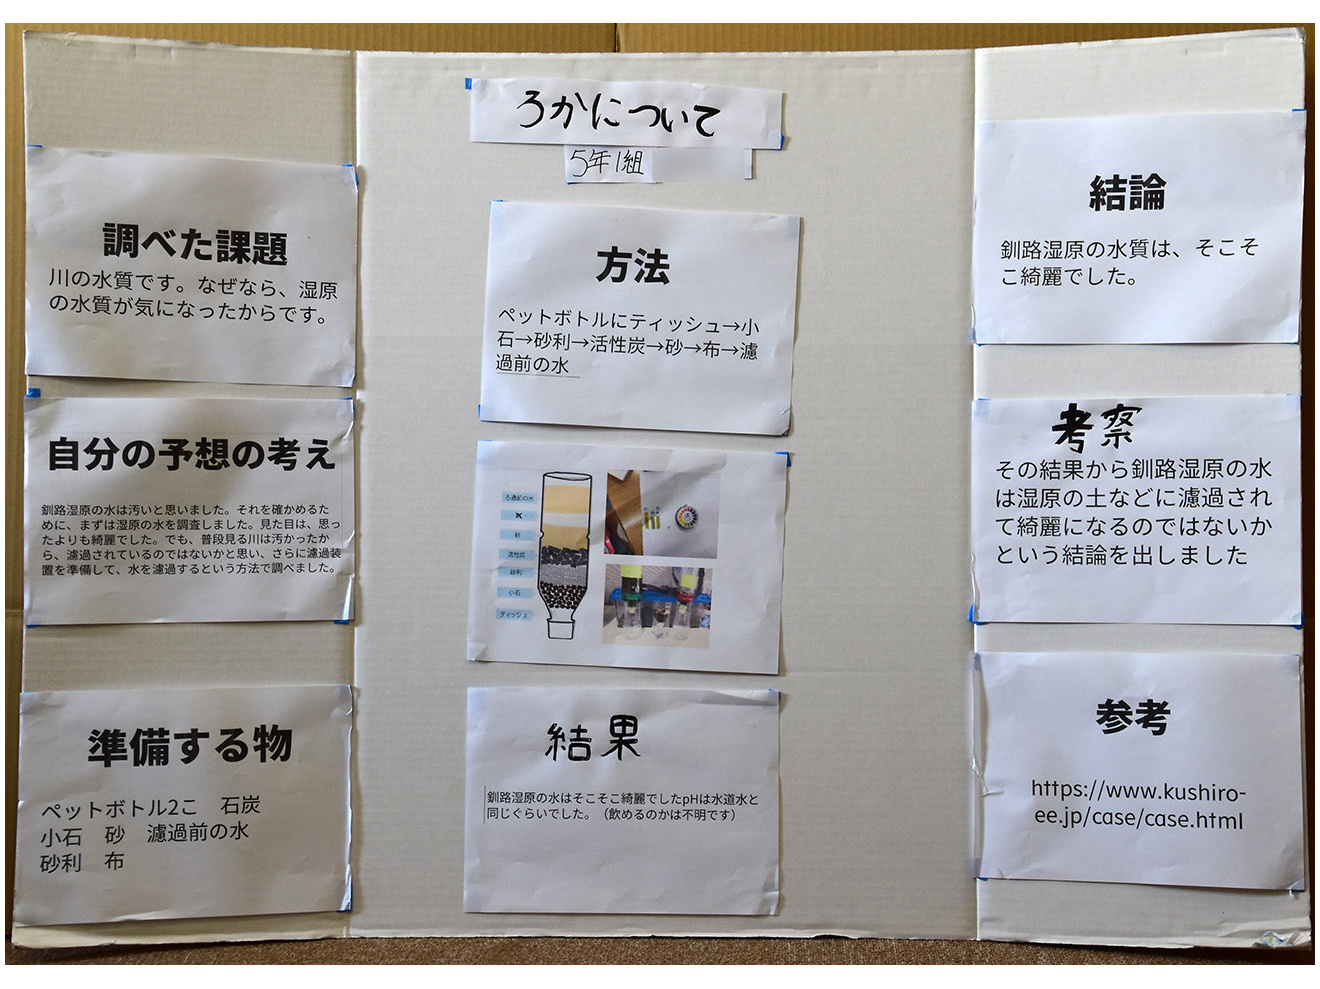 ろかについて
5年1組
調べた課題
川の水質です。なぜなら、湿原
の水質が気になったからです。
自分の予想の考え
釧路湿原の水は汚いと思いました。それを確かめるた
めに、まずは湿原の水を調査しました。見た目は、思っ
たよりも綺麗でした。でも、普段見る川は汚かったか
ら、濾過されているのではないかと思い、さらに濾過装
置を準備して、水を濾過するという方法で調べました。
準備する物
ペットボトル2こ　石炭
小石　砂　濾過前の水
砂利　布
方法
ペットボトルにティッシュ→小
石→砂利→活性炭→砂→布→濾
過前の水
ろ過前の水
砂
活性炭
砂利
小石
ティッシュ
結果
釧路湿原の水はそこそこ綺麗でしたpHは水道水と
同じぐらいでした。（飲めるのかは不明です）
結論
釧路湿原の水質は、そこそ
こ綺麗でした。
考察
その結果から釧路湿原の水
は湿原の土などに濾過され
て綺麗になるのではないか
という結論を出しました
参考
https://www.kushiro-
ee.jp/case/case.html